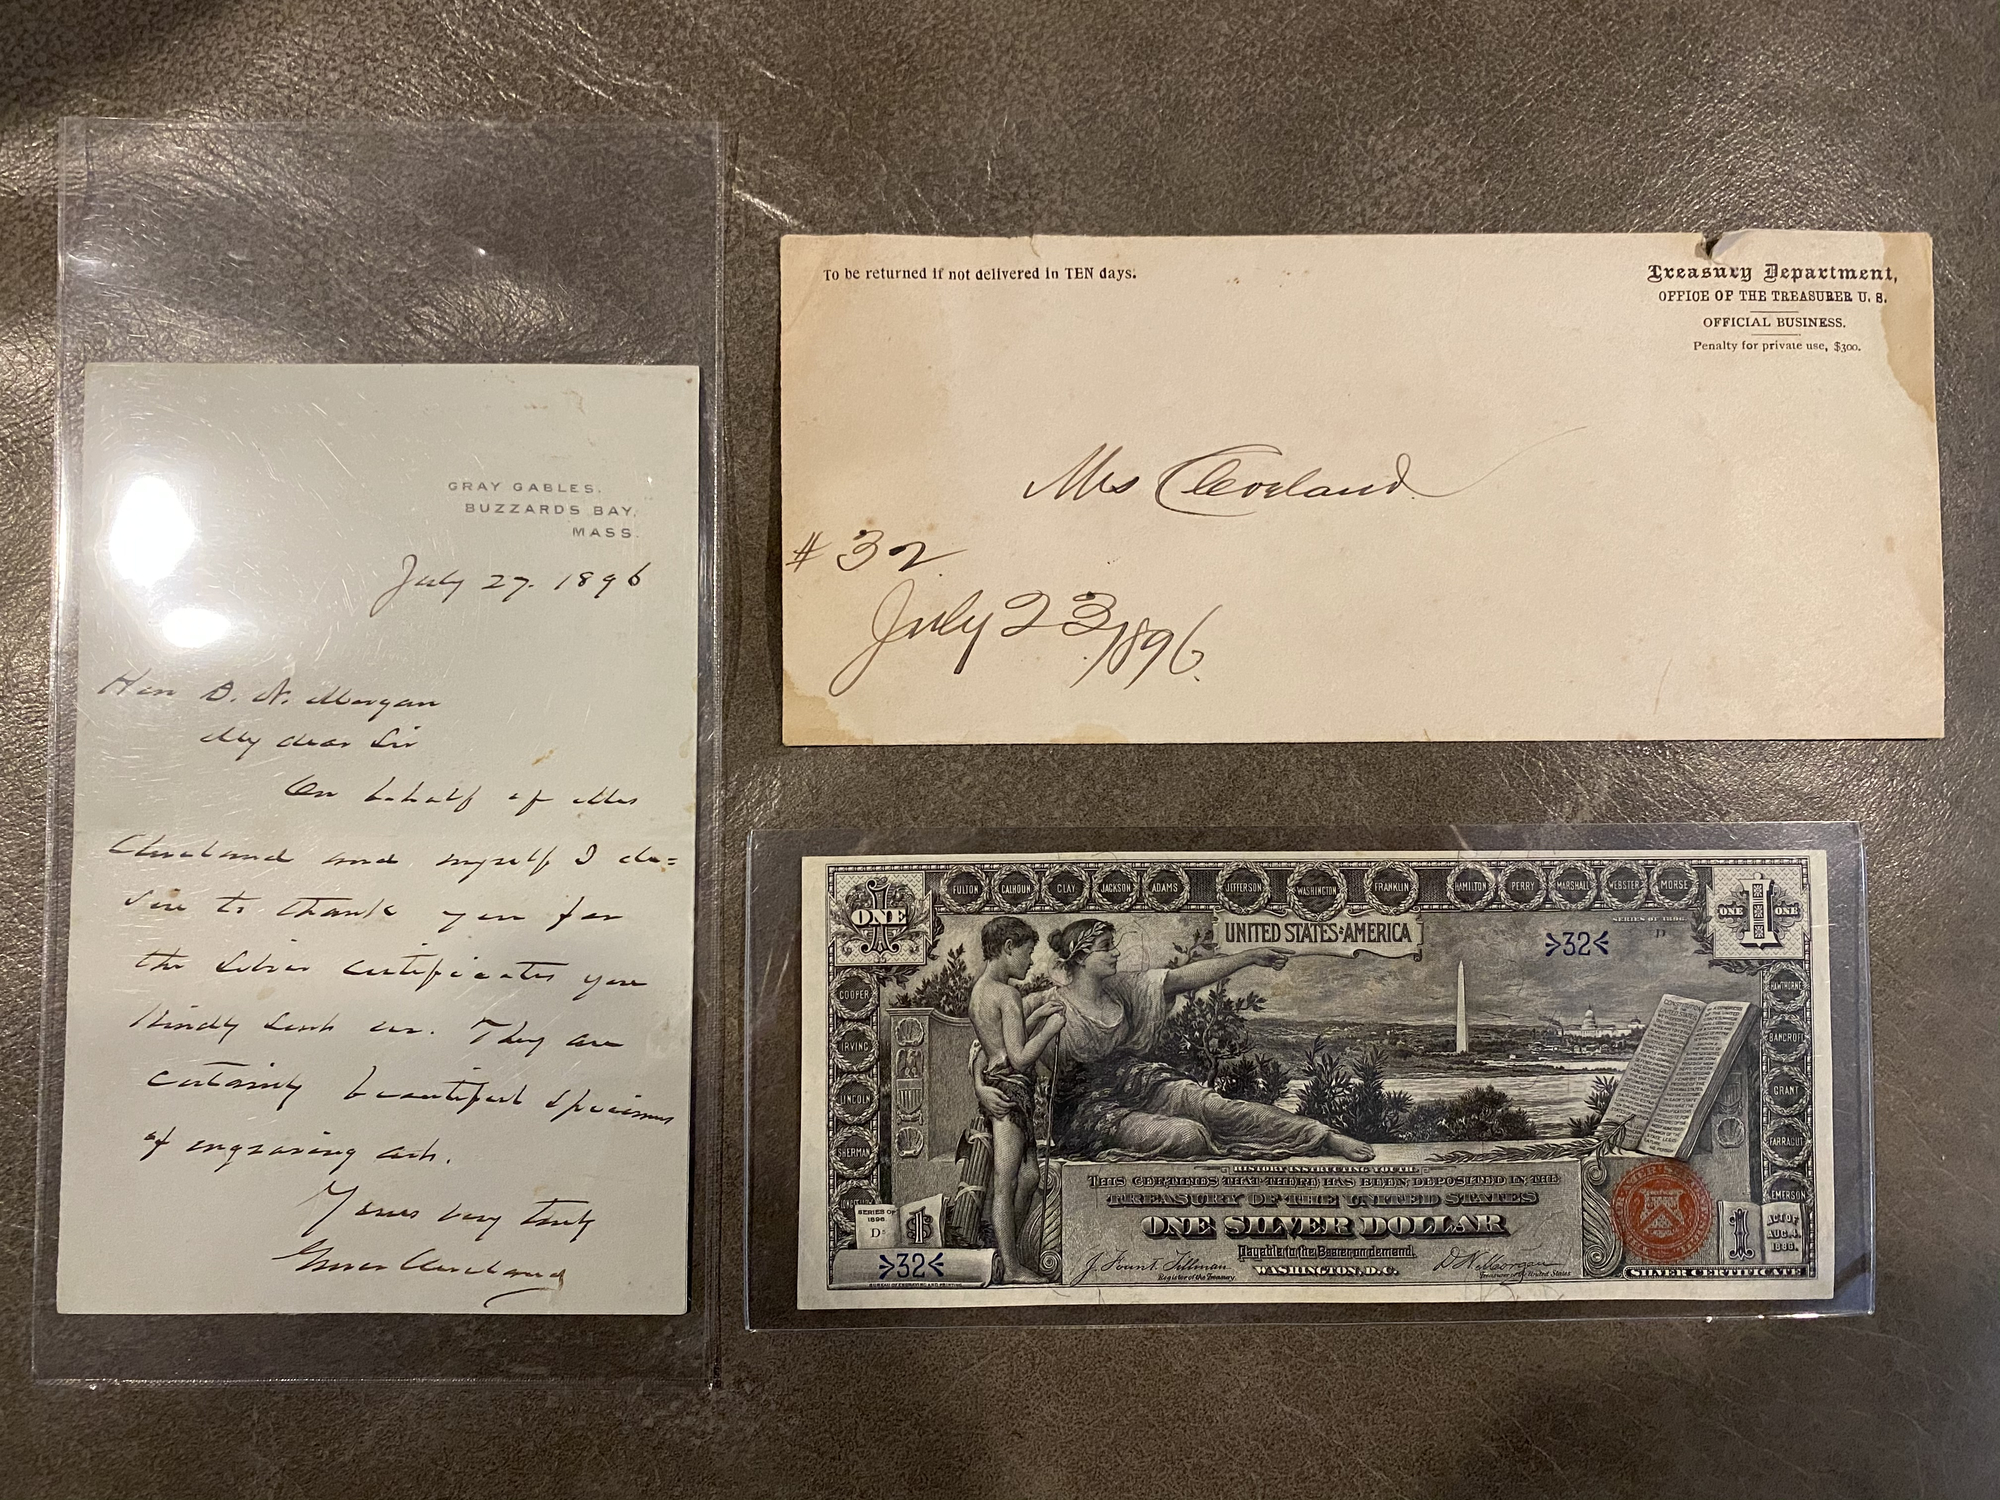 GRAY GABLES.
BUZZARDS BAY,
MASS.
July 27. 1896
Hon D. N. Morgan
My dear Sir
On behalf of Mrs
Cleveland and myself I de=
sire to thank you for
the Silver Certificates you
kindly sent us. They are
certainly beautiful specimens
of engraving art.
Yours very truly
Grover Cleveland
To be returned if not delivered in TEN days.
Treasury Department,
OFFICE OF THE TREASURER U. S.
OFFICIAL BUSINESS.
Penalty for private use, $300.
Mrs Cleveland
# 32
July 23, 1896.
FULTON CALHOUN CLAY JACKSON ADAMS JEFFERSON WASHINGTON FRANKLIN HAMILTON PERRY MARSHALL WEBSTER MORSE
ONE
ONE 1 ONE
SERIES OF 1896.
D
UNITED STATES OF AMERICA
32
COOPER
IRVING
LINCOLN
SHERMAN
LONGFELLOW
HAWTHORNE
BANCROFT
GRANT
FARRAGUT
EMERSON
HISTORY INSTRUCTING YOUTH.
THIS CERTIFIES THAT THERE HAS BEEN DEPOSITED IN THE
TREASURY OF THE UNITED STATES
ONE SILVER DOLLAR
Payable to the Bearer on demand.
WASHINGTON, D.C.
SERIES OF
1896
D
1
32
BUREAU OF ENGRAVING AND PRINTING
J. Fount. Tillman
Register of the Treasury.
D. N. Morgan
Treasurer of the United States
1
ACT OF
AUG. 4,
1886.
SILVER CERTIFICATE